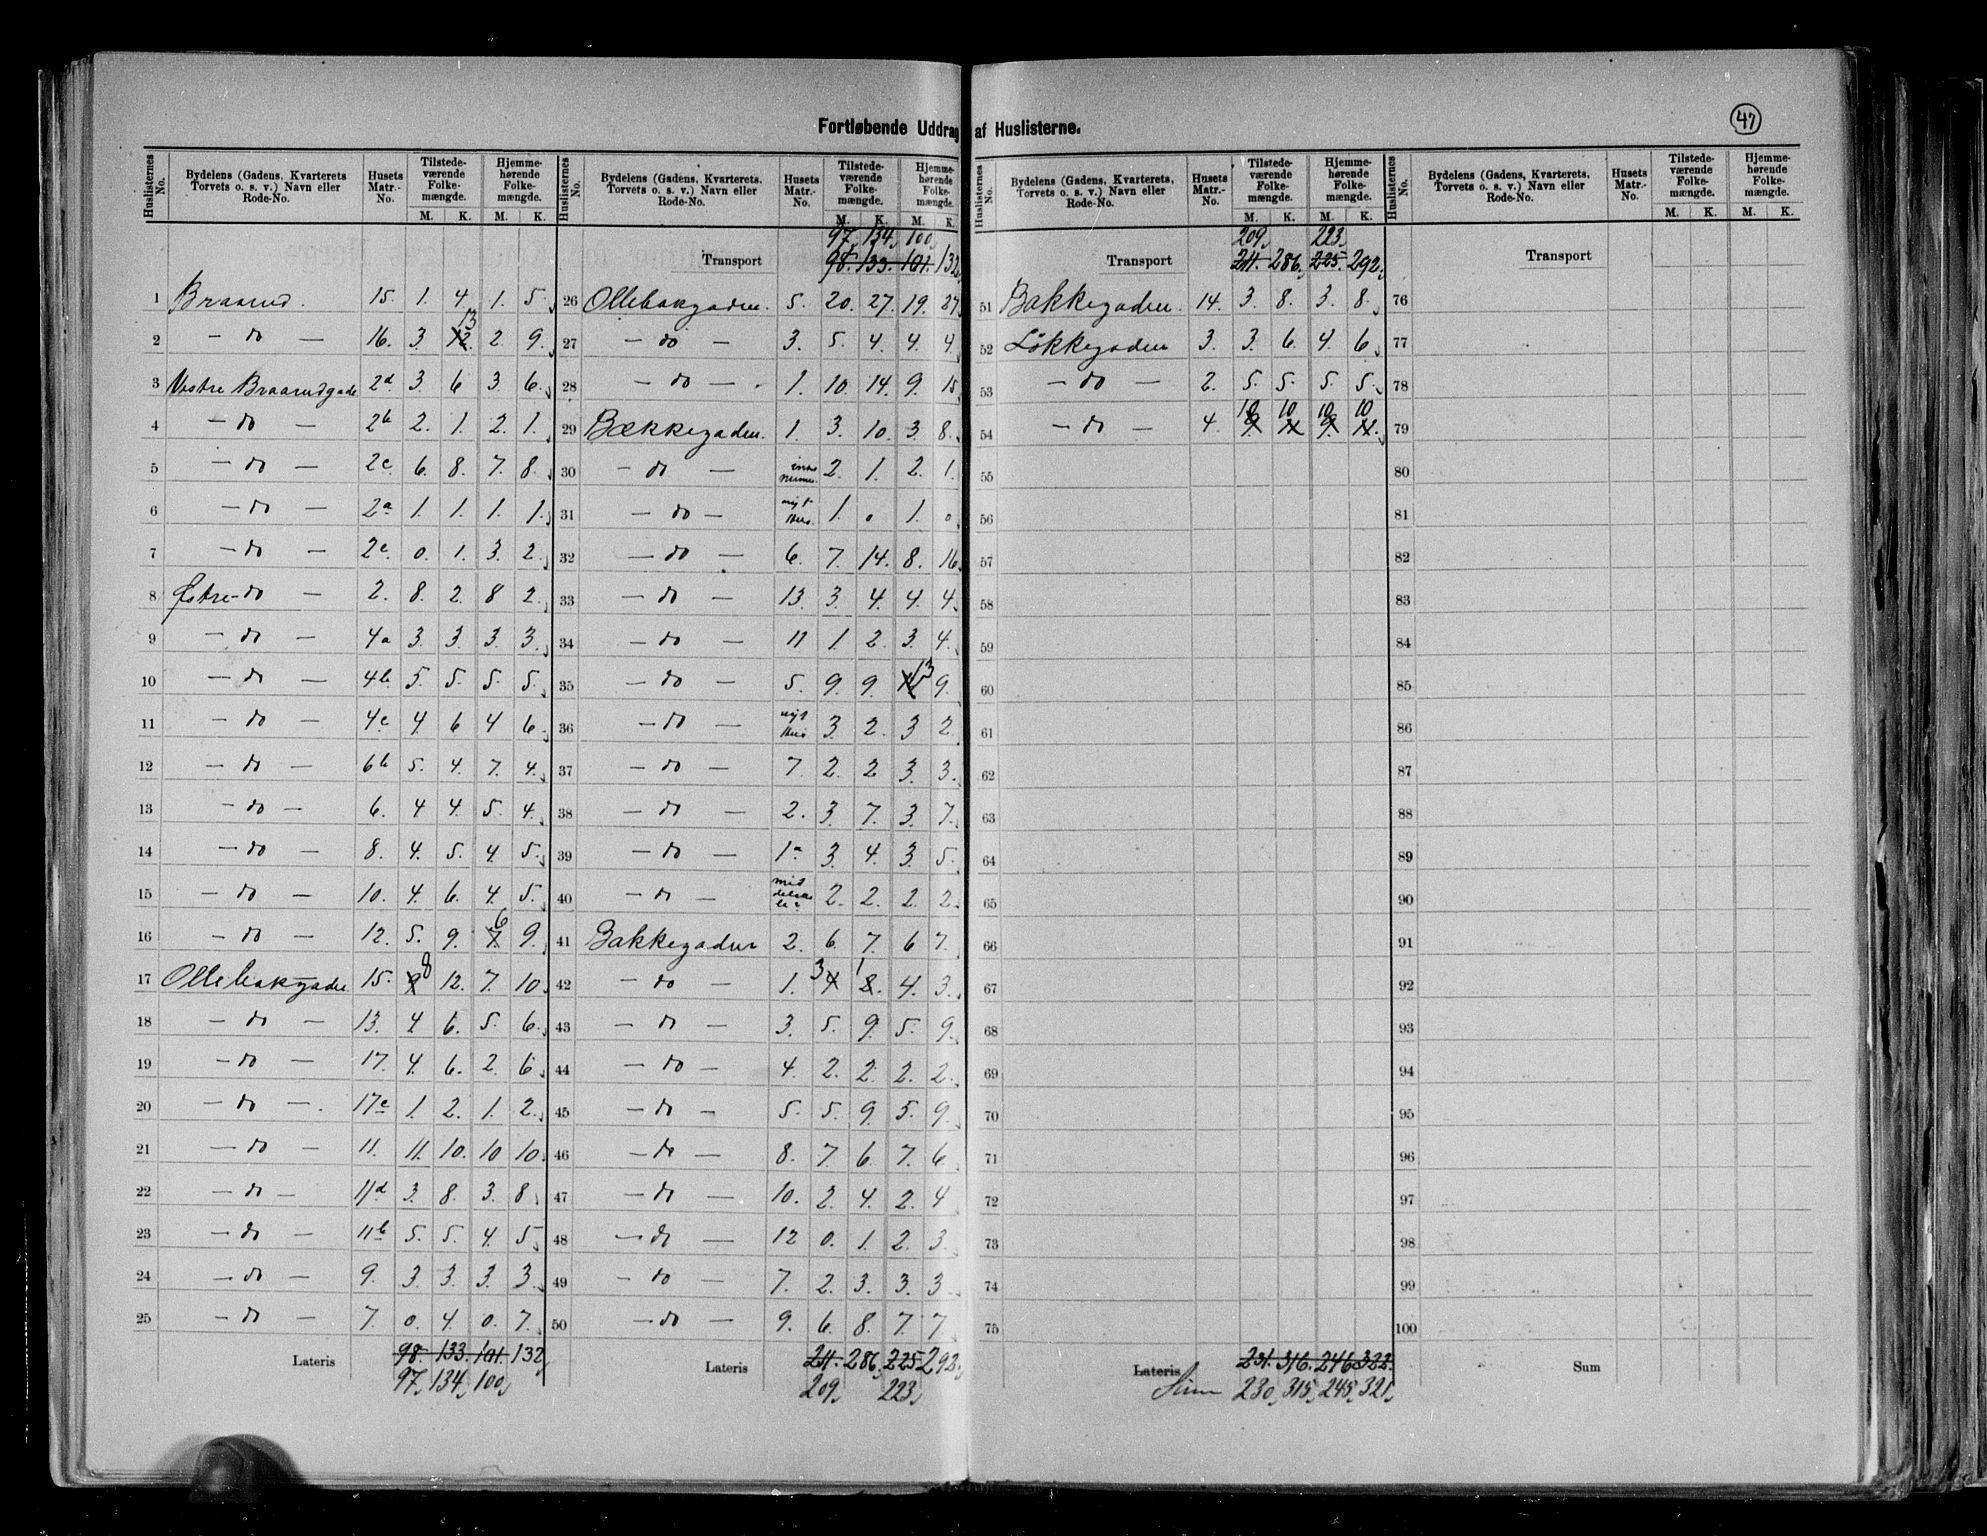 Fortløbende Uddrag af Huslisterne.
47
Huslisternes No. Bydelens (Gadens, Kvarterets Torvets o. s. v.) Navn eller Rode-No. Husets Matr.-No. Tilstede-værende Folke-mængde. M. K. Hjemme-hørende Folke-mængde. M. K.
1 Braarud. 15. 1. 4. 1. 5.
2 – do – 16. 3. 12. 13 2. 9.
3 Vestre Braarudgade 2d 3. 6 3. 6.
4 – do – 2b 2. 1. 2. 1.
5 – do – 2c. 6. 8. 7. 8.
6 – do – 2a 1. 1. 1. 1.
7 – do – 2e. 0. 1. 3. 2.
8 Østre – do – 2. 8. 2. 8 2.
9 – do – 4a 3. 3. 3. 3.
10 – do – 4b. 5. 5. 5. 5.
11 – do – 4c 4. 6 4 6.
12 – do – 6b 5. 4. 7. 4.
13 – do – 6. 4 4. 5. 4.
14 – do – 8. 4. 5. 4. 5.
15 – do – 10. 4. 6. 4. 5.
16 – do – 12. 5. 9. 7. 6 9.
17 Ollebakgaden 15. 9 8 12. 7. 10.
18 – do – 13. 4 6. 5. 6.
19 – do – 17. 4. 6. 2. 6.
20 – do – 17c 1. 2. 1. 2.
21 – do – 11. 11. 10. 10 10.
22 – do – 11d 3. 8. 3. 8.
23 – do – 11b 5. 5. 4. 5.
24 – do – 9. 3. 3. 3. 3.
25 – do – 7. 0. 4. 0. 7.
Lateris 98. 133. 101. 132.
97. 134. 100.
Huslisternes No. Bydelens (Gadens, Kvarterets, Torvets o. s. v.) Navn eller Rode-No. Husets Matr.-No. Tilstede-værende Folke-mængde. M. K. Hjemme-hørende Folke-mængde. M. K.
97. 134. 100.
Transport 98. 133. 101. 132.
26 Ollebakgaden. 5. 20. 27. 19. 27.
27 – do – 3. 5. 4. 4. 4.
28 – do – 1. 10. 14. 9. 15
29 Bækkegaden. 1. 3. 10. 3. 8.
30 – do – 2. 1. 2. 1.
31 – do – nyt Hus. 1. 0 1. 0.
32 – do – 6. 7. 14. 8. 16.
33 – do – 13. 3. 4. 4. 4.
34 – do – 11 1. 2. 3. 4.
35 – do – 5. 9. 9. 13 9.
36 – do – nyt Hus 3. 2. 3. 2.
37 – do – 7. 2. 2 3. 3.
38 – do – 2. 3. 7. 3. 7.
39 – do – 1a 3. 4. 3. 5.
40 – do – 2. 2. 2. 2.
41 Bakkegaden 2. 6. 7. 6 7.
42 – do – 1. 3 4 1 8. 4. 3.
43 – do – 3. 5. 9. 5. 9.
44 – do – 4. 2. 2. 2. 2.
45 – do – 5. 5. 9. 5. 9.
46 – do – 8. 7. 6. 7. 6.
47 – do – 10. 2. 4. 2. 4
48 – do – 12 0. 1. 2. 3.
49 – do – 7. 2. 3. 3. 3
50 – do – 9. 6. 8. 7. 7
Lateris 211. 286. 225. 292.
209. 223.
Huslisternes No. Bydelens (Gadens, Kvarterets, Torvets o. s. v.) Navn eller Rode-No. Husets Matr.-No. Tilstede-værende Folke-mængde. M. K. Hjemme-hørende Folke-mængde. M. K.
209. 223.
Transport 211. 286. 225. 292.
51 Bakkegaden. 14. 3. 8. 3. 8.
52 Løkkegaden 3. 3. 6. 4. 6.
53 – do – 2. 5. 5. 5. 5.
54 – do – 4. 10 9. 10 11 10 9. 10 11.
55
56
57
58
59
60
61
62
63
64
65
66
67
68
69
70
71
72
73
74
75
Lateris 231. 316. 246. 322.
Sum 230. 315. 245. 321.
Huslisternes No. Bydelens (Gadens, Kvarterets, Torvets o. s. v.) Navn eller Rode-No. Husets Matr.-No. Tilstede-værende Folke-mængde. M. K. Hjemme-hørende Folke-mængde. M. K.
Transport
76
77
78
79
80
81
82
83
84
85
86
87
88
89
90
91
92
93
94
95
96
97
98
99
100
Sum